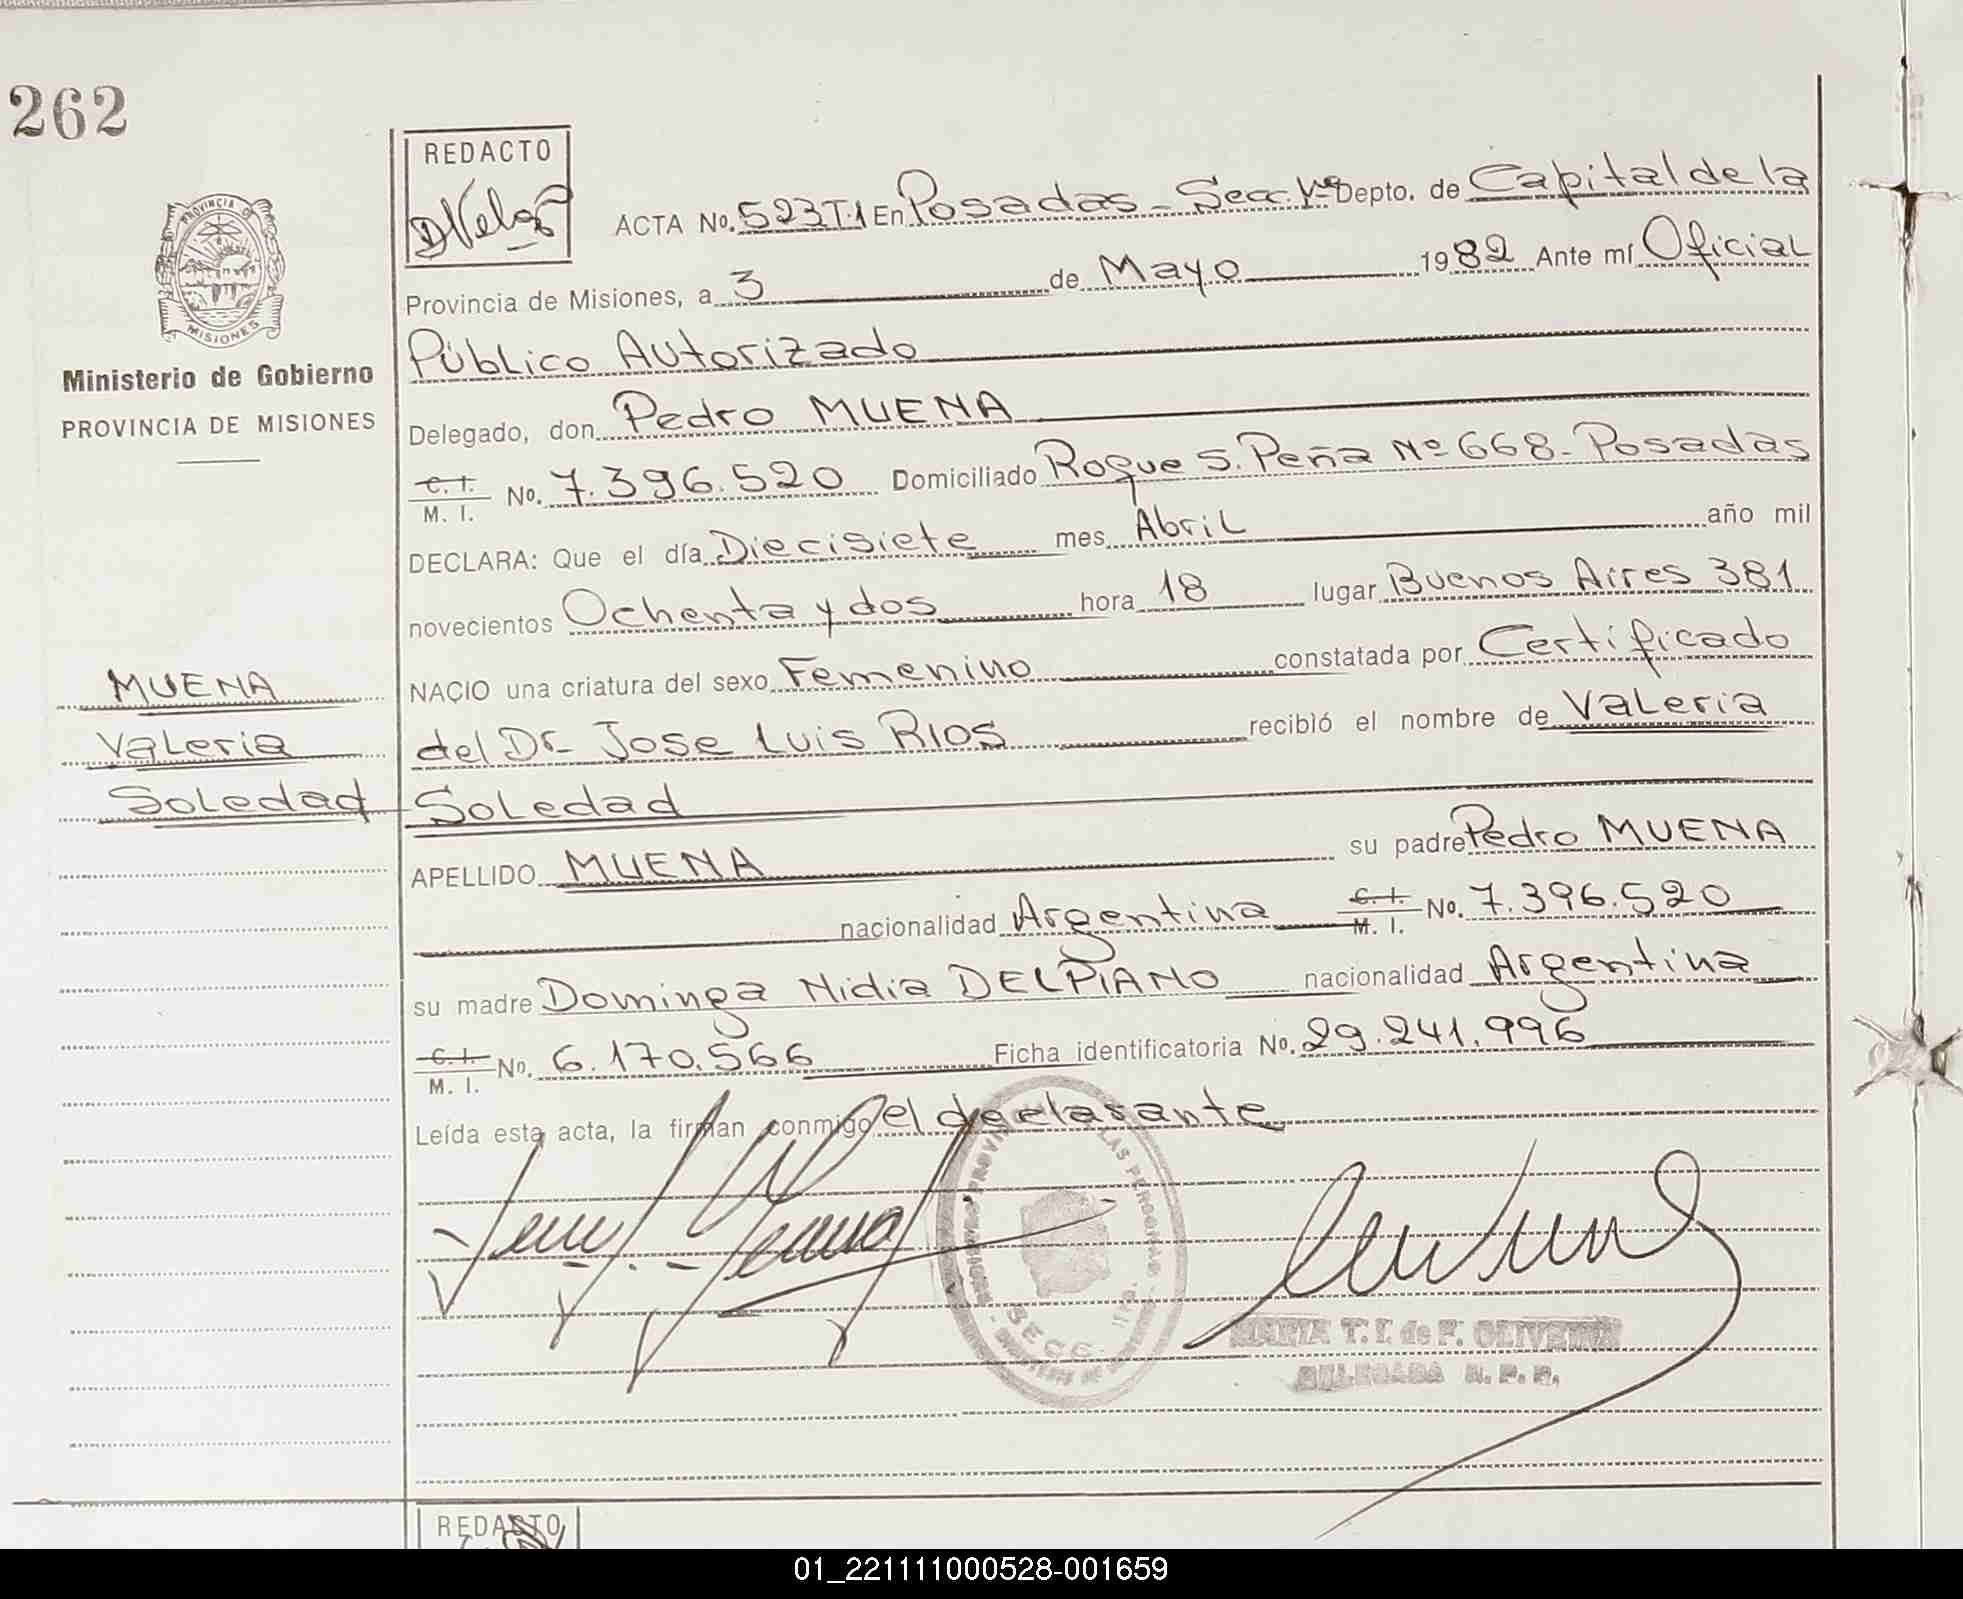 262
REDACTO
PROVINCIA DE
MISIONES
Ministerio de Gobierno
PROVINCIA DE MISIONES
ACTA No. 523 T.1 En Posadas - Secc. 1ª Depto. de Capital de la
Provincia de Misiones, a 3 de Mayo 1982 Ante mí Oficial
Público Autorizado
Delegado, don Pedro MUENA
C. I.
M. I. No. 7.396.520 Domiciliado Roque S. Peña Nº 668 - Posadas
DECLARA: Que el día Diecisiete mes Abril año mil
novecientos Ochenta y dos hora 18 lugar Buenos Aires 381
NACIO una criatura del sexo Femenino constatada por Certificado
del Dr. Jose Luis RIOS recibió el nombre de Valeria
Soledad
MUENA
Valeria
Soledad
APELLIDO MUENA su padre Pedro MUENA
nacionalidad Argentina C. I. M. I. No. 7.396.520
su madre Dominga Nidia DELPIANO nacionalidad Argentina
C. I.
M. I. No. 6.170.566 Ficha identificatoria No. 29.241.996
Leída esta acta, la firman conmigo el declarante
T. I. de F. OLIVEIRA
DELEGADA R. P. P.
REDACTO
01_221111000528-001659